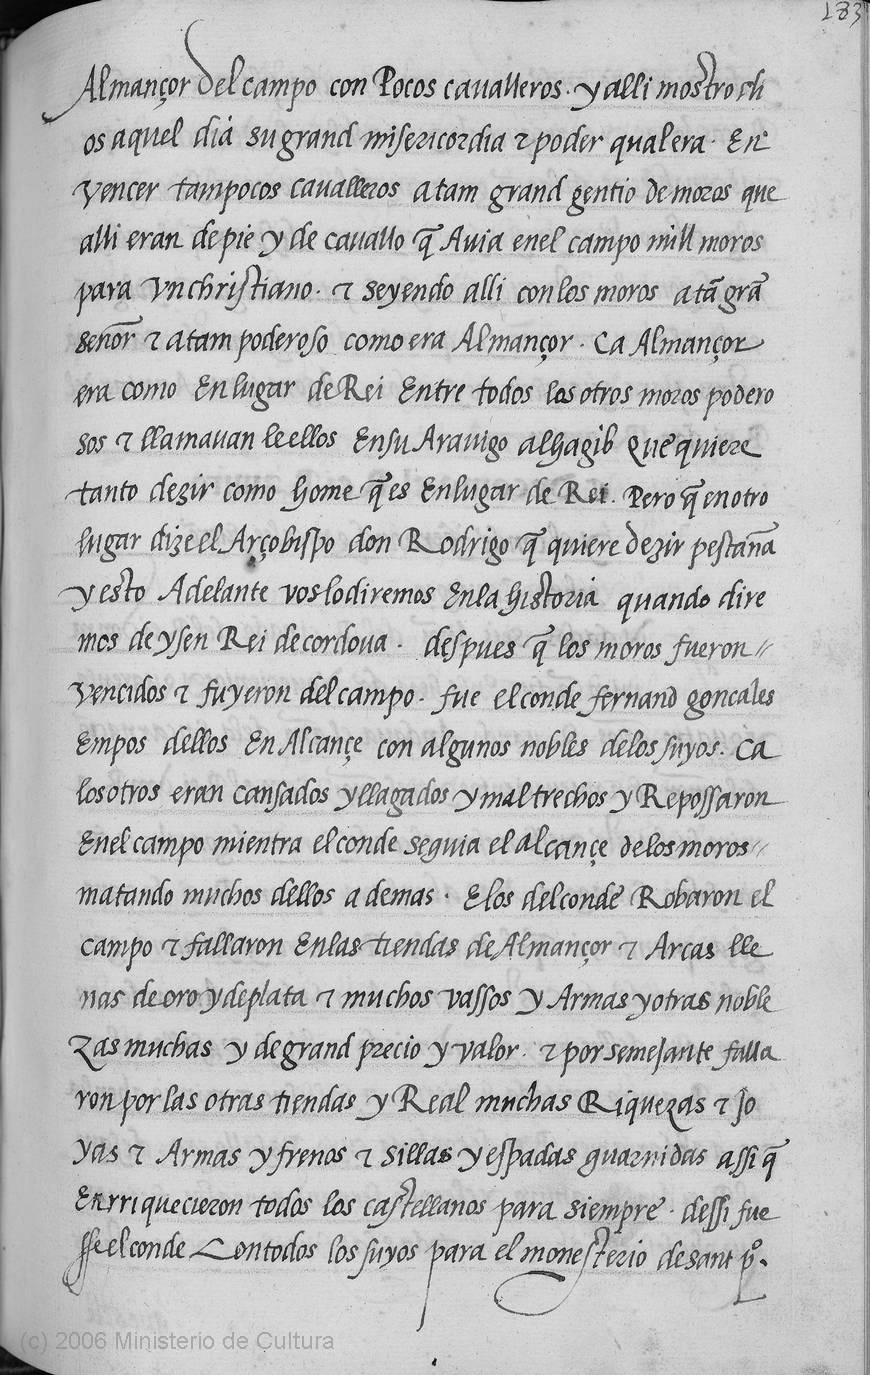 183
Almançor del campo con Pocos cavalleros. y alli mostro di
os aquel dia su grand misericordia τ poder qual era. En
vencer tampocos cavalleros atam grand gentio de moros que
alli eran de pie y de cavallo q̃ Avia enel campo mill moros
para Vn christiano. τ seyendo alli conlos moros a tã grã
señor τ atam poderoso como era Almançor. Ca Almançor
era como En lugar de Rei Entre todos los otros moros podero
sos τ llamavan le ellos Ensu Aravigo alhagib que quiere
tanto dezir como home q̃ es Enlugar de Rei. Pero q̃ en otro
lugar dize el Arçobispo don Rodrigo q̃ quiere dezir pestaña
y esto Adelante vos lo diremos Enla historia quando dire
mos de ysen Rei de cordova. despues q̃ los moros fueron
vencidos τ fuyeron del campo. fue el conde fernand goncales
Empos dellos En Alcançe con algunos nobles delos suyos. Ca
los otros eran cansados y llagados y mal trechos y Repossaron
Enel campo mientra el conde seguia el alcançe delos moros
matando muchos dellos a demas. E los del conde Robaron el
campo τ fallaron Enlas tiendas de Almançor τ Arcas lle
nas de oro y de plata τ muchos vassos y Armas y otras noble
zas muchas y de grand precio y valor. τ por semejante falla
ron por las otras tiendas y Real muchas Riquezas τ Jo
yas τ Armas y frenos τ sillas y espadas guarnidas assi q̃
Enrriquecieron todos los castellanos para siempre. dessi fue
sse el conde Con todos los suyos para el monesterio de sant pº.
(c) 2006 Ministerio de Cultura